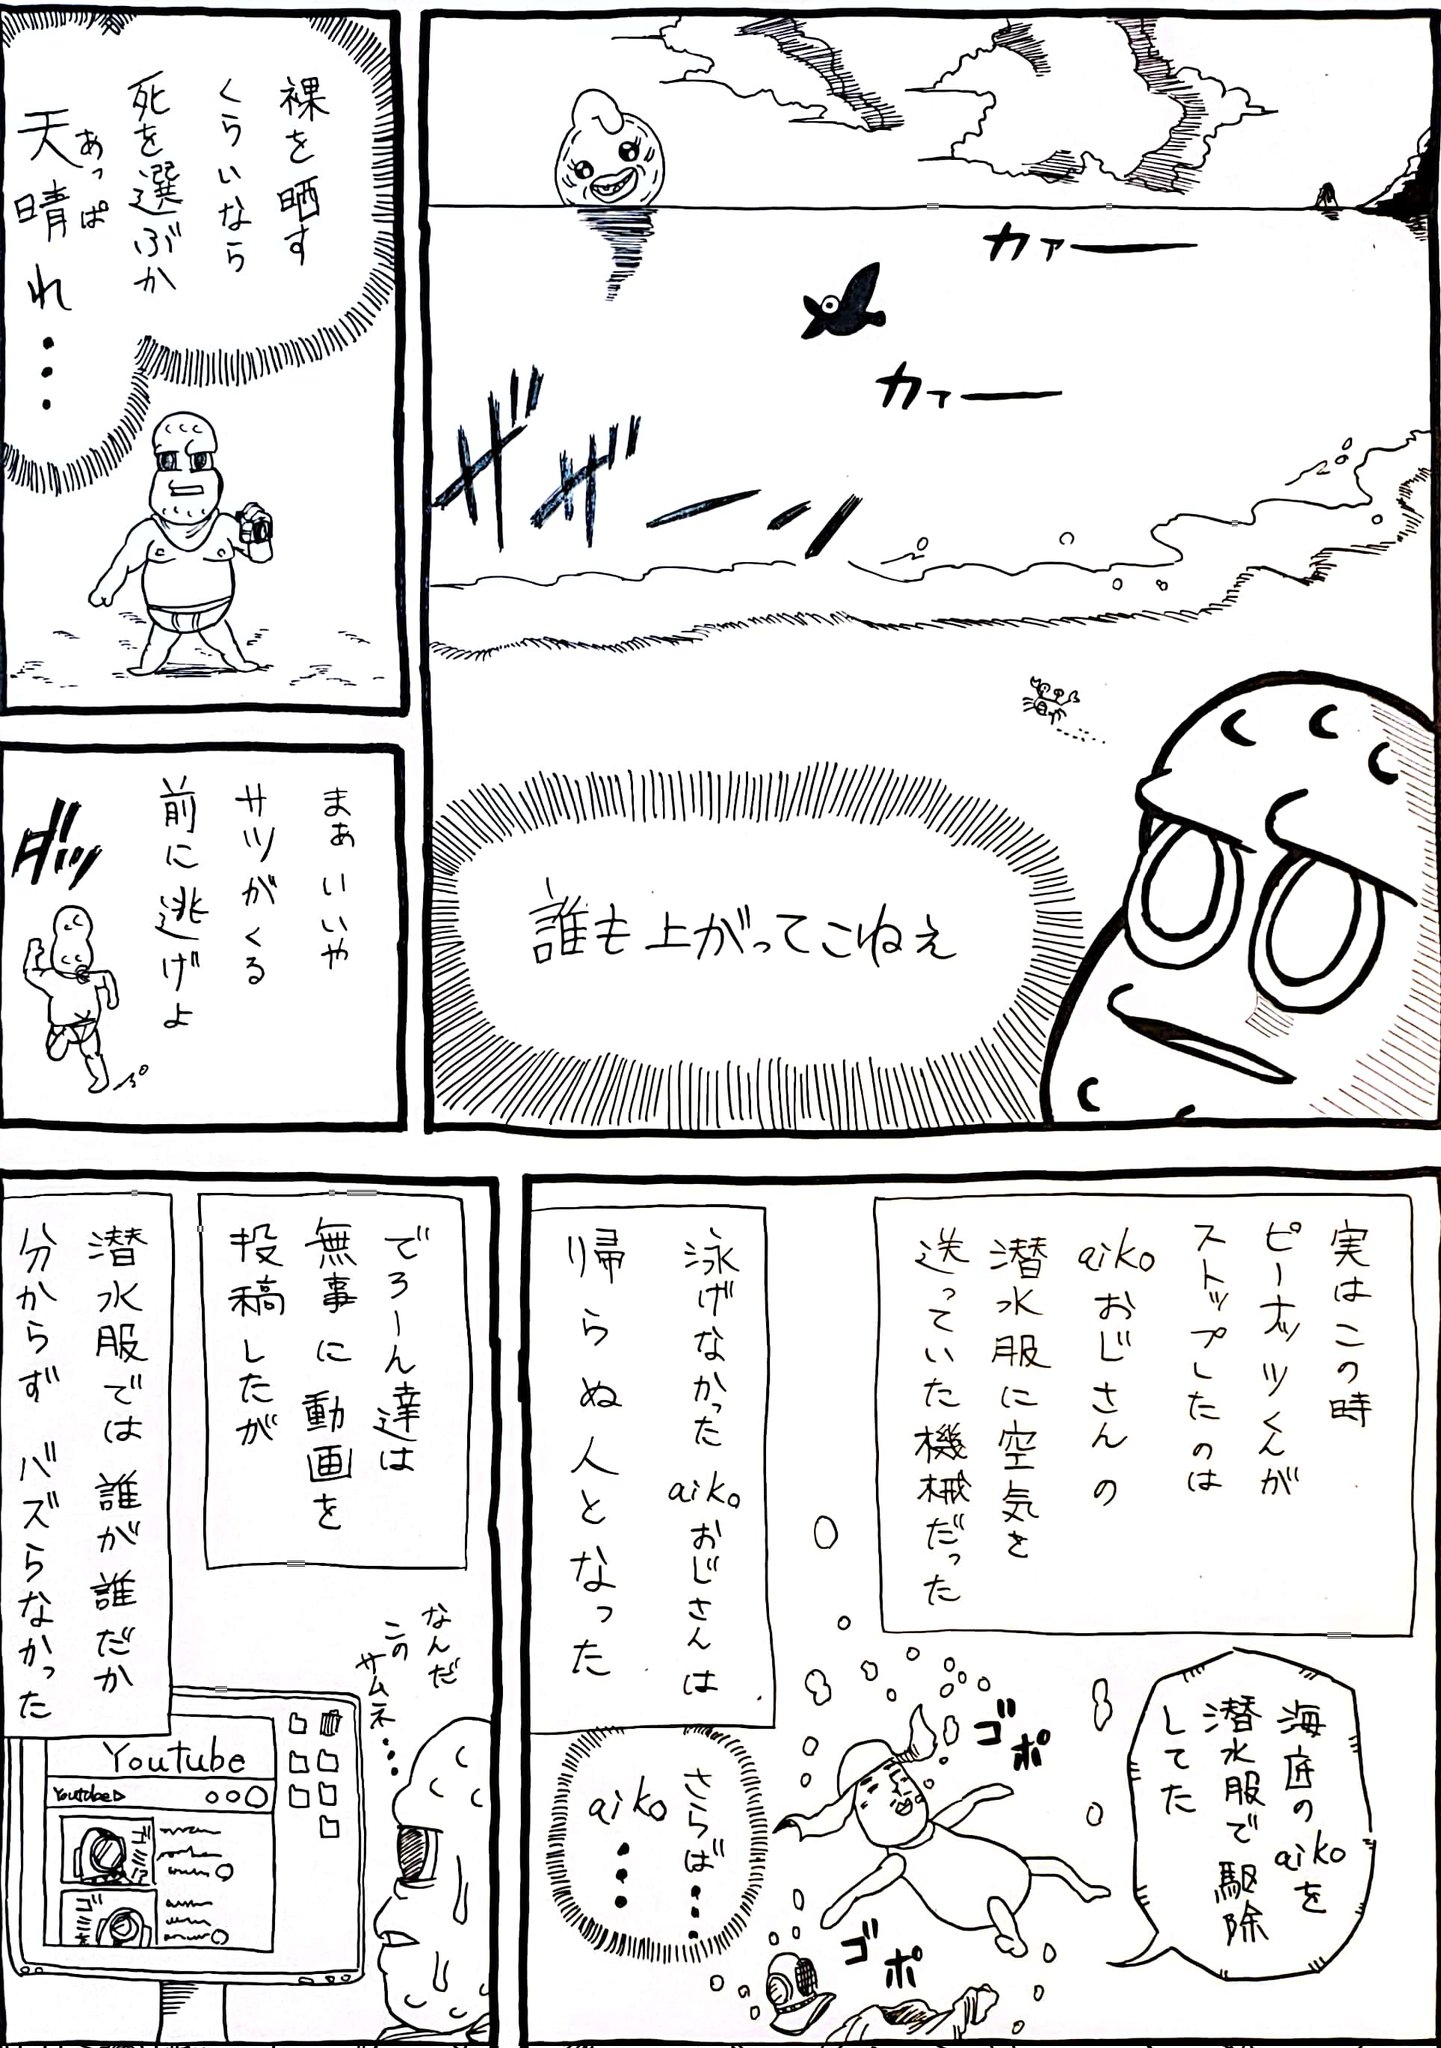 カァー
カァー
ザザーン
誰も上がってこねぇ
裸を晒す
くらいなら
死を選ぶか
天晴れ・・・
あっぱ
まぁいいや
サツがくる
前に逃げよ
ダッ
実はこの時
ピーナッツくんが
ストップしたのは
aikoおじさんの
潜水服に空気を
送っていた機械だった
海底のaikoを
潜水服で駆除
してた
ゴポ
ゴポ
泳げなかったaikoおじさんは
帰らぬ人となった
さらば・・・
aiko・・・
でろーん達は
無事に動画を
投稿したが
潜水服では誰が誰だか
分からずバズらなかった
なんだ
この
サムネ・・・
Youtube
Youtube
ゴミ
ゴミ